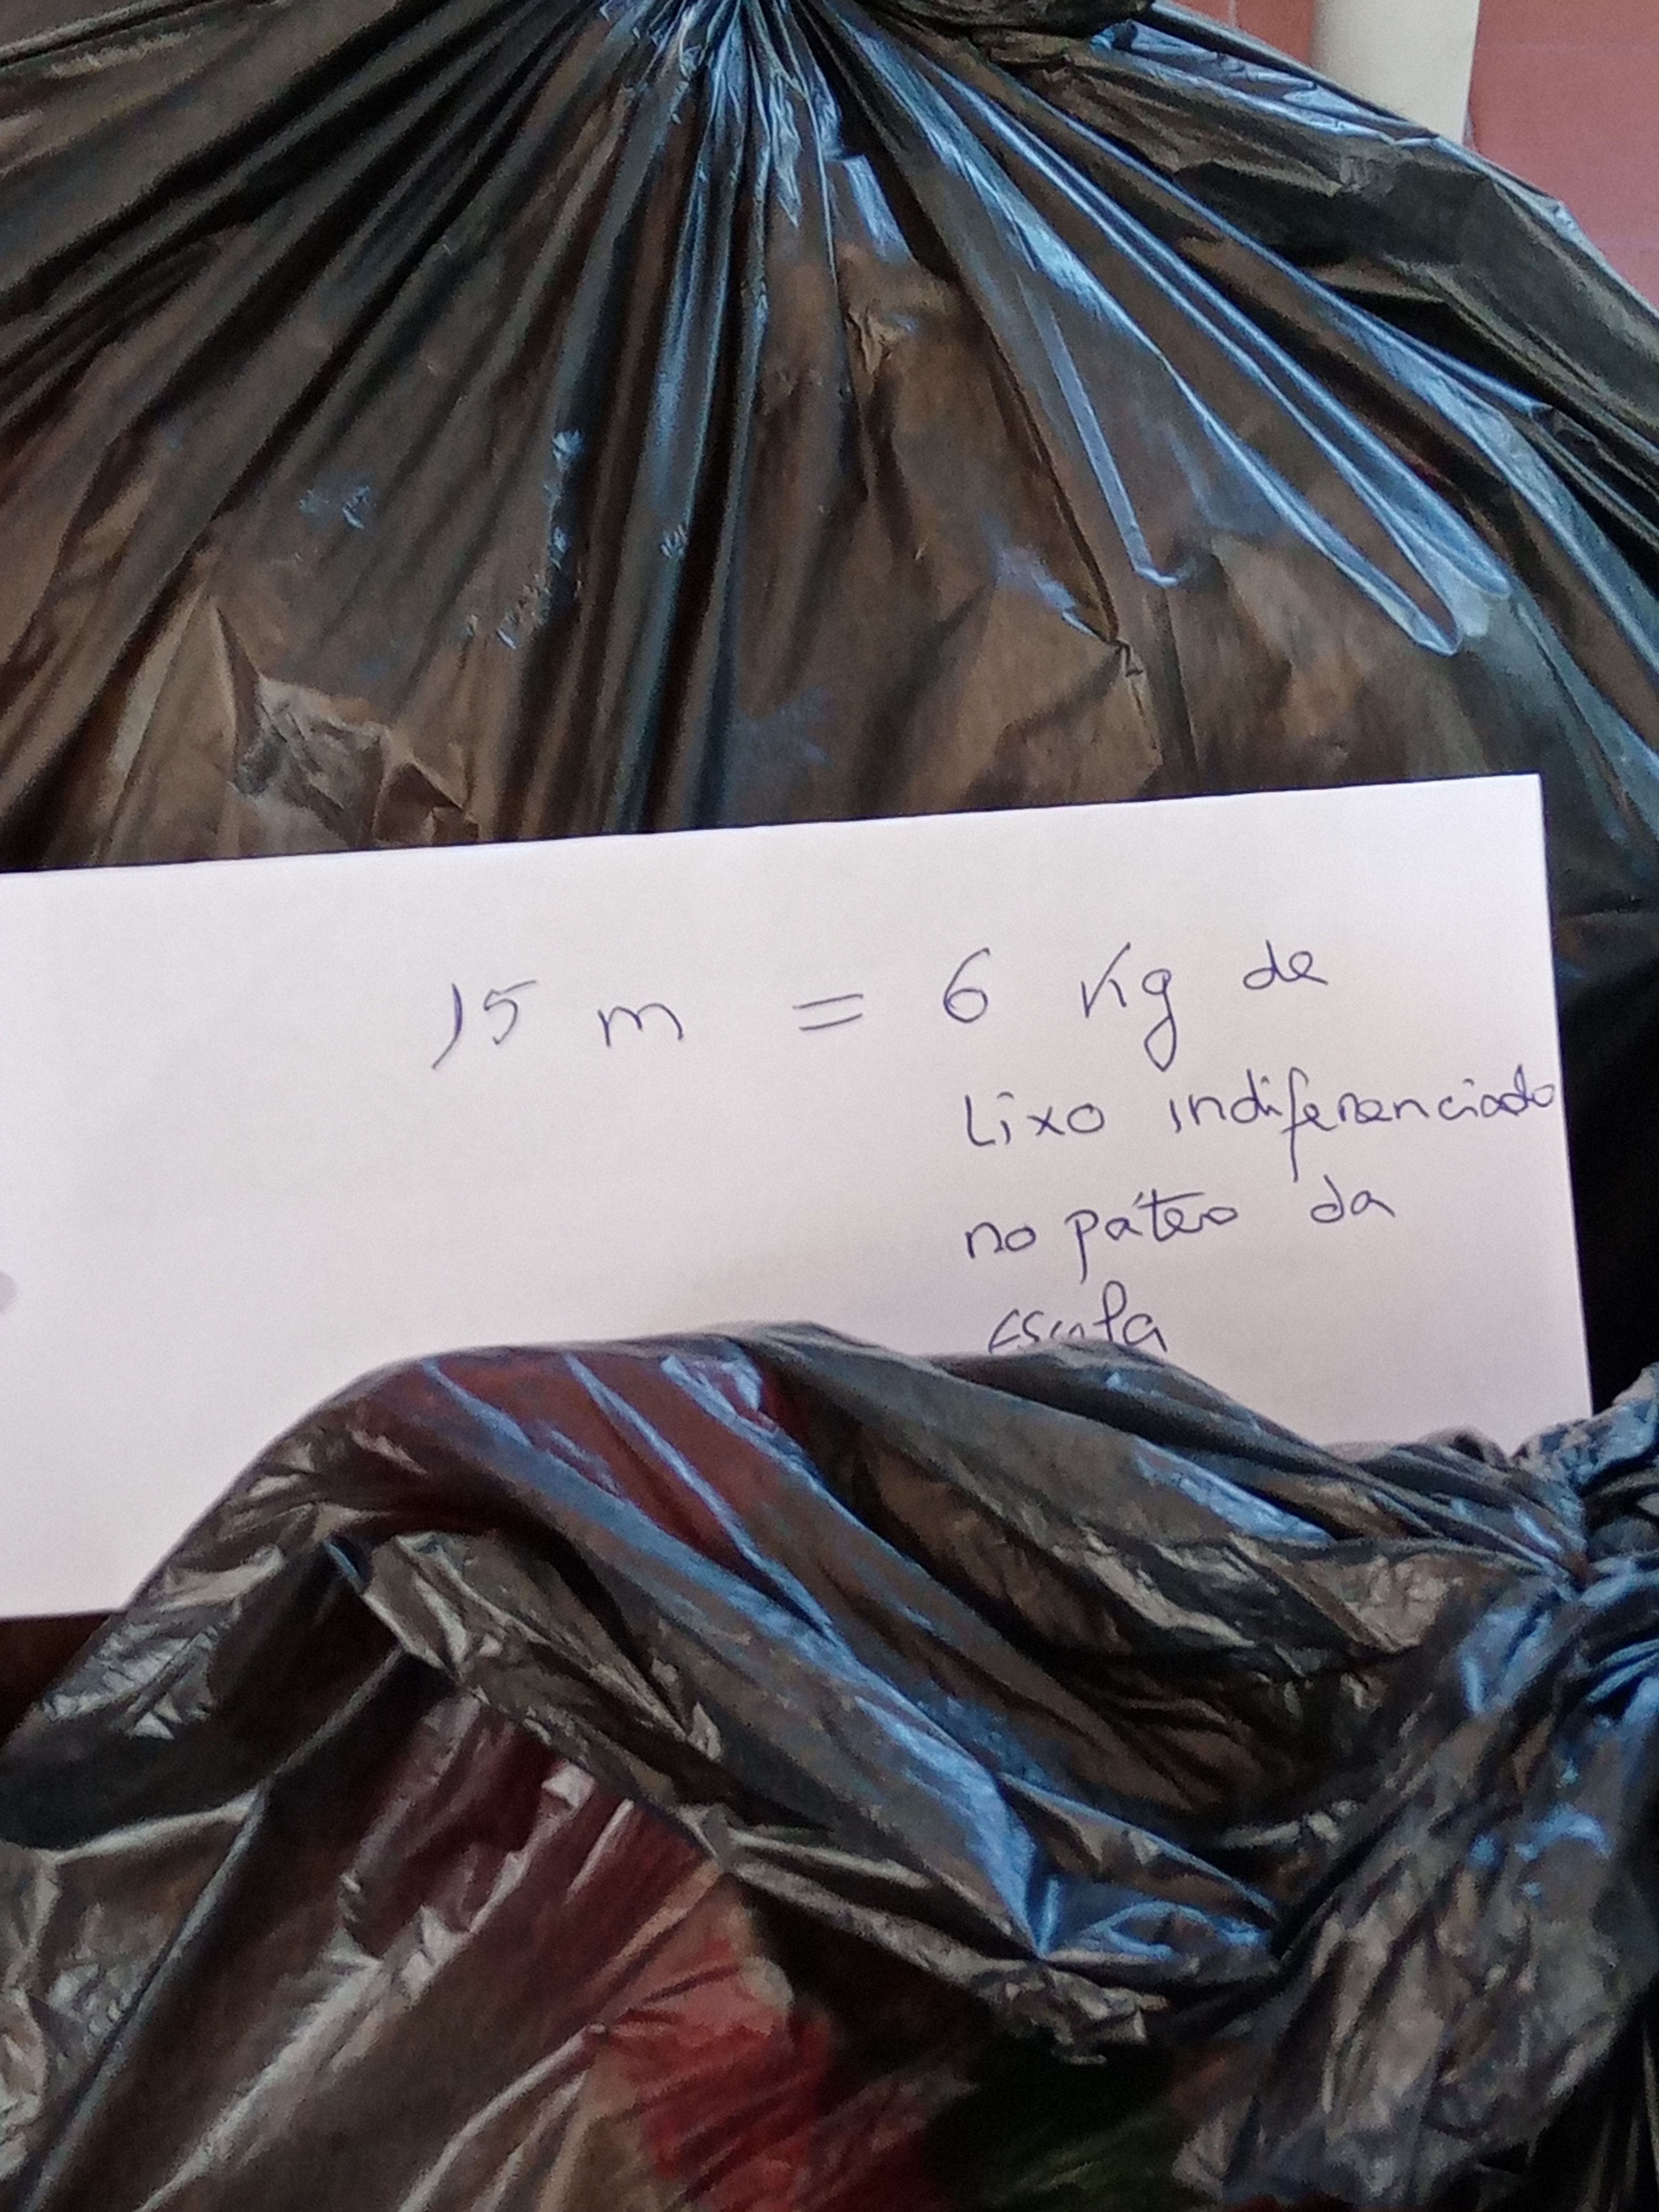 15 m = 6 Kg de
Lixo indiferenciado
no páteo da
escola